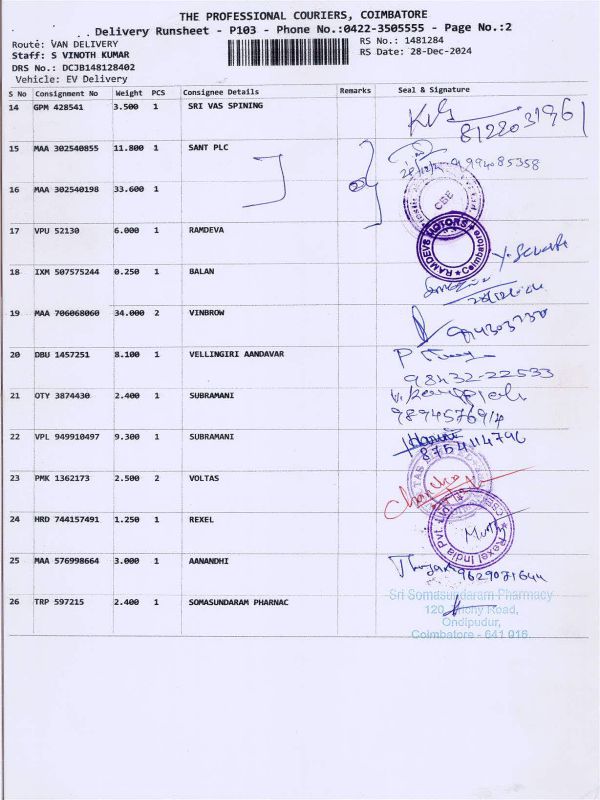 THE PROFESSIONAL COURIERS, COIMBATORE
Delivery Runsheet - P103 - Phone No.:0422-3505555 - Page No.:2
Route: VAN DELIVERY
RS No.: 1481284
Staff: S VINOTH KUMAR
RS Date: 28-Dec-2024
DRS No.: DCJB148128402
Vehicle: EV Delivery
S No Consignment No Weight PCS Consignee Details Remarks Seal & Signature
14 GPM 428541 3.500 1 SRI VAS SPINING
8122031961
15 MAA 302540855 11.800 1 SANT PLC
9994085358
16 MAA 302540198 33.600 1
CBE
17 VPU 52130 6.000 1 RAMDEVA
RAMDEVS MOTORS Coimbatore
18 IXM 507575244 0.250 1 BALAN
28/12/24
19 MAA 706068060 34.000 2 VINBROW
20 DBU 1457251 8.100 1 VELLINGIRI AANDAVAR
98432-22533
21 OTY 3874430 2.400 1 SUBRAMANI
9894576914
22 VPL 949910497 9.300 1 SUBRAMANI
8754114796
23 PMK 1362173 2.500 2 VOLTAS
24 HRD 744157491 1.250 1 REXEL
Rexel India Pvt. Ltd.
25 MAA 576998664 3.000 1 AANANDHI
9629071644
26 TRP 597215 2.400 1 SOMASUNDARAM PHARNAC
Sri Somasundaram Pharmacy
120, Trichy Road,
Ondipudur,
Coimbatore - 641 016.